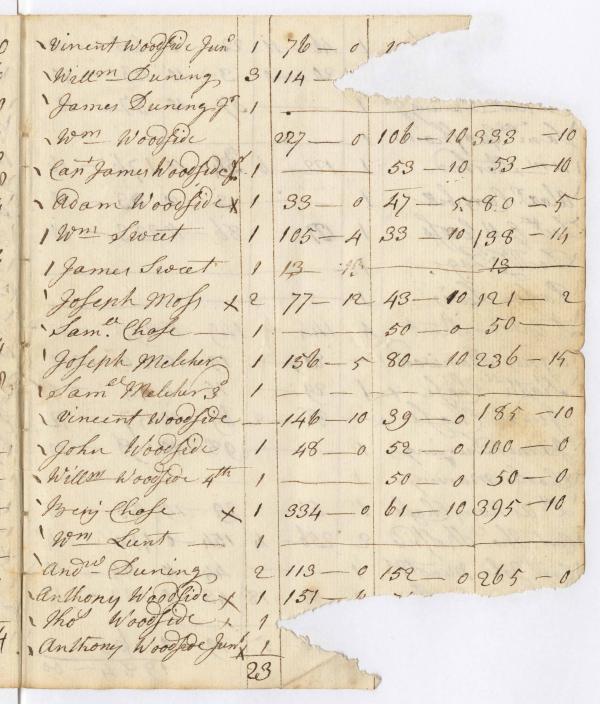 Vincent Woodside Junr 1 76 — 0
Willm Duning 3 114 —
James Duning Jr 1
Wm Woodside 227 — 0 106 — 10 333 — 10
Capt James Woodside Jr 1 — 53 — 10 53 — 10
Adam Woodside x 1 33 — 0 47 — 5 80 — 5
Wm Sweet 1 105 — 4 33 — 10 138 — 14
James Sweet 1 13 — 13 — 13
Joseph Moss x 2 77 — 12 43 — 10 121 — 2
Samll Chase — 1 — 50 — 0 50 —
Joseph Melcher 1 156 — 5 80 — 10 236 — 15
Samll Melcher 3d 1 —
Vincent Woodside — 146 — 10 39 — 0 185 — 10
John Woodside 1 48 — 0 52 — 0 100 — 0
Willm Woodside 4th 1 — 50 — 0 50 — 0
Benj Chase x 1 334 — 0 61 — 10 395 — 10
Wm Lunt — 1 —
Andw Duning 2 113 — 0 152 — 0 265 — 0
Anthony Woodside x 1 151 —
Thos Woodside x 1
Anthony Woodside Junr x 1
23